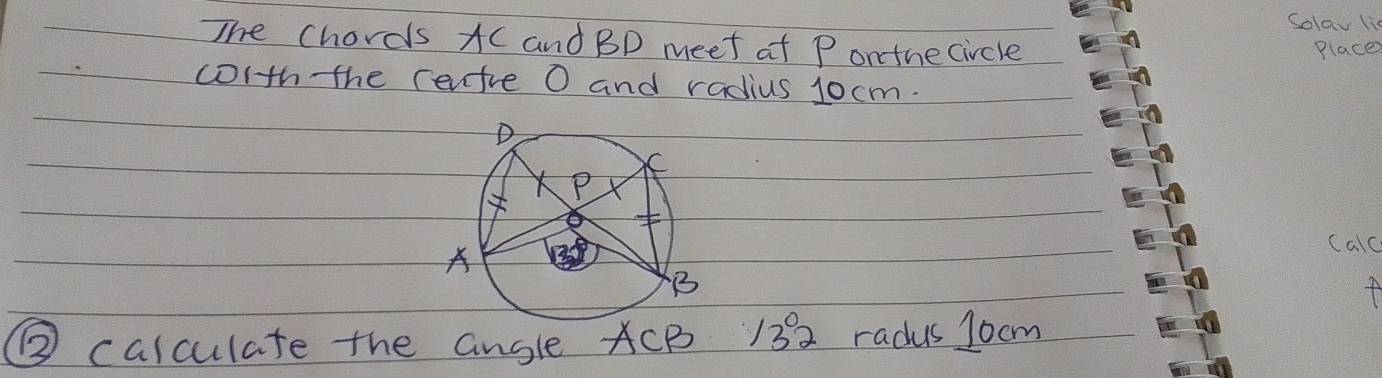 The chords AC and BD meet at P on the circle
with the centre O and radius 10cm.
D
C
P
A
B
② calculate the angle ACB 132° radus 10cm
Solar
place
Calc